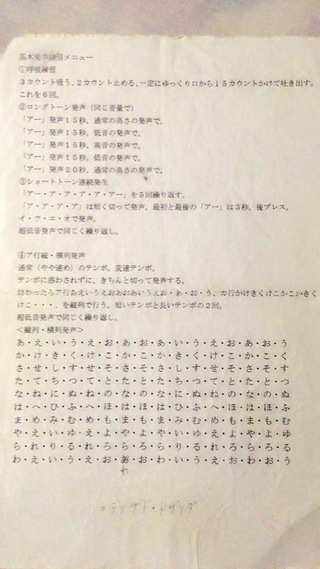 基本発声練習メニュー
①呼吸練習
3カウント吸う、2カウント止める、一定にゆっくり口から15カウントかけて吐き出す。
これを6回。
②ロングトーン発声（同じ音量で）
「アー」発声15秒。通常の高さの発声で。
「アー」発声15秒。低音の発声で。
「アー」発声15秒。高音の発声で。
「アー」発声15秒。低音の発声で。
「アー」発声20秒。通常の高さの発声で。
③ショートトーン連続発生
「アー・ア・ア・ア・ア・アー」を5回繰り返す。
「アー・ア・ア・ア」は短く切って発声。最初と最後の「アー」は3秒。後ブレス。
イ・ウ・エ・オで発声。
超低音発声で同じく繰り返し。
④ア行縦・横列発声
通常（やや速め）のテンポ。変速テンポ。
テンポに惑わされずに、きちんと切って発声する。
終わったらア行あえいうえおあおあいうえお・あ・お・う、カ行かけきくけこかこかきく
けこ・・・、を縦列で行う。短いテンポと長いテンポの2回。
超低音発声で同じく繰り返し。
＜縦列・横列発声＞
あ・え・い・う・え・お・あ・お・あ・い・う・え・お・あ・お・う
か・け・き・く・け・こ・か・こ・か・き・く・け・こ・か・こ・く
さ・せ・し・す・せ・そ・さ・そ・さ・し・す・せ・そ・さ・そ・す
た・て・ち・つ・て・と・た・と・た・ち・つ・て・と・た・と・つ
な・ね・に・ぬ・ね・の・な・の・な・に・ぬ・ね・の・な・の・ぬ
は・へ・ひ・ふ・へ・ほ・は・ほ・は・ひ・ふ・へ・ほ・は・ほ・ふ
ま・め・み・む・め・も・ま・も・ま・み・む・め・も・ま・も・む
や・え・い・ゆ・え・よ・や・よ・や・い・ゆ・え・よ・や・よ・ゆ
ら・れ・り・る・れ・ろ・ら・ろ・ら・り・る・れ・ろ・ら・ろ・る
わ・え・い・う・え・お・あ・お・わ・い・う・え・お・わ・お・う
わ